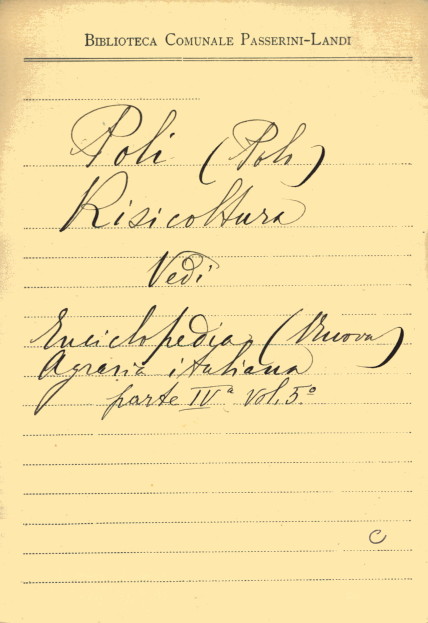 BIBLIOTECA COMUNALE PASSERINI-LANDI
Poli (Pol)
Risicoltura
Vedi
Enciclopedia (Nuova)
Agraria italiana
parte IVª Vol. 5º
C